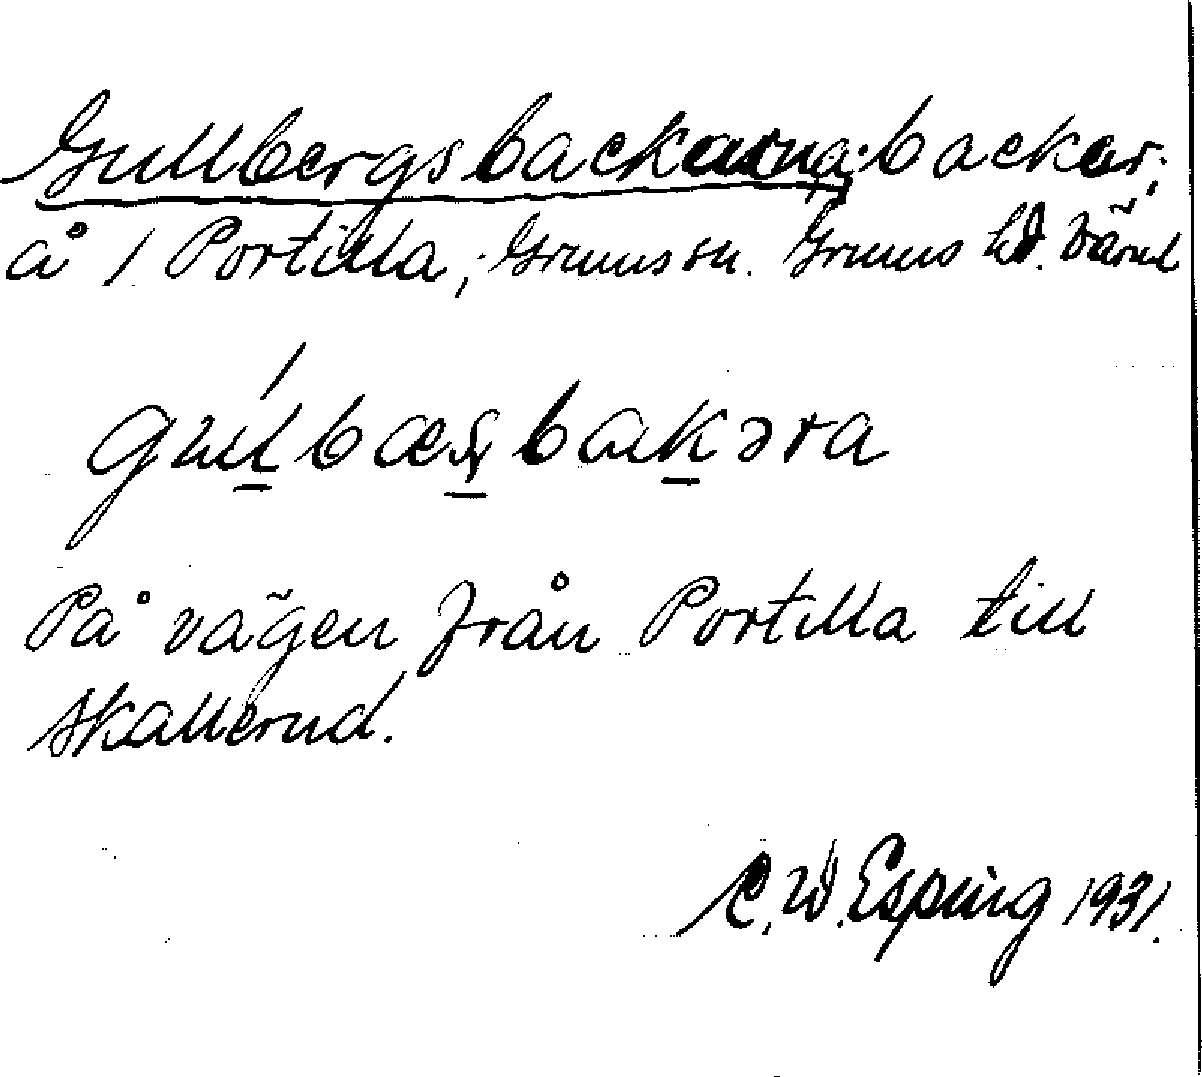 Gullbergsbackarna; backar,
å 1 Portilla; Grums sn. Grums hd. Värml
gul̲bæʂ̲bak̲əra
På vägen från Portilla till
Skallerud.
C. W. Esping 1931.